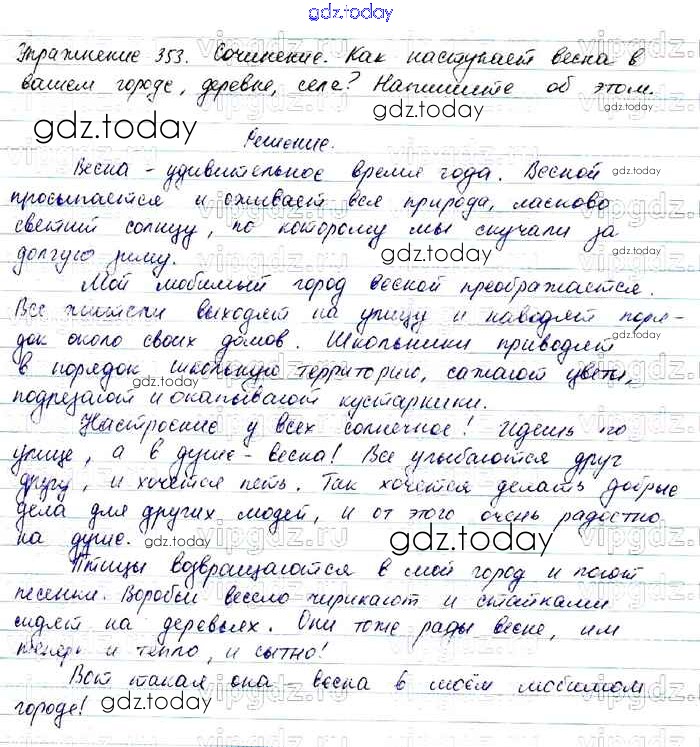 gdz.today
Упражнение 353. Сочинение. Как наступает весна в
вашем городе, деревне, селе? Напишите об этом.
gdz.today
gdz.today
Решение.
Весна - удивительное время года. Весной
gdz.today
просыпается и оживает вся природа, ласково
светит солнцу, по которому мы скучали за
долгую зиму.
gdz.today
Мой любимый город весной преображается.
Все жители выходят на улицу и наводят поря-
док около своих домов. Школьники приводят
в порядок школьную территорию, сажают цветы,
gdz.today
gdz.today
подрезают и окапывают кустарники.
Настроение у всех солнечное! Идешь по
улице, а в душе - весна! Все улыбаются друг
другу, и хочется петь. Так хочется делать добрые
дела для других людей, и от этого очень радостно
на душе.
gdz.today
gdz.today
Птицы возвращаются в мой город и поют
песенки. Воробьи весело чирикают и стайками
сидят на деревьях. Они тоже рады весне, им
теперь и тепло, и сытно!
gdz.today
Вот такая она весна в моём любимом
городе!
gdz.today
gdz.today
vipgdz.ru